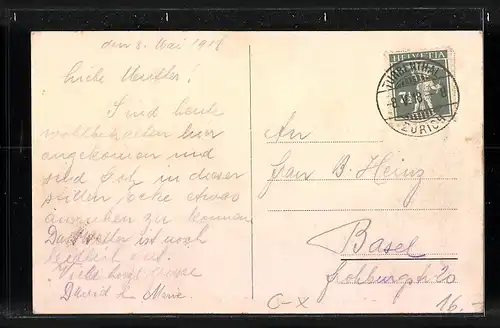 den 3. Mai 1918
Liebe Mutter!
Sind heute
wohlbehalten hier
angekommen und
sind froh, in dieser
stillen Ecke etwas
ausruhen zu können
Das Wetter ist noch
Viele herzl. Grüsse
David & Marie.
HELVETIA
7½
TURBENTHAL
ZÜRICH
An
Frau B. Heinz
Basel
16.-